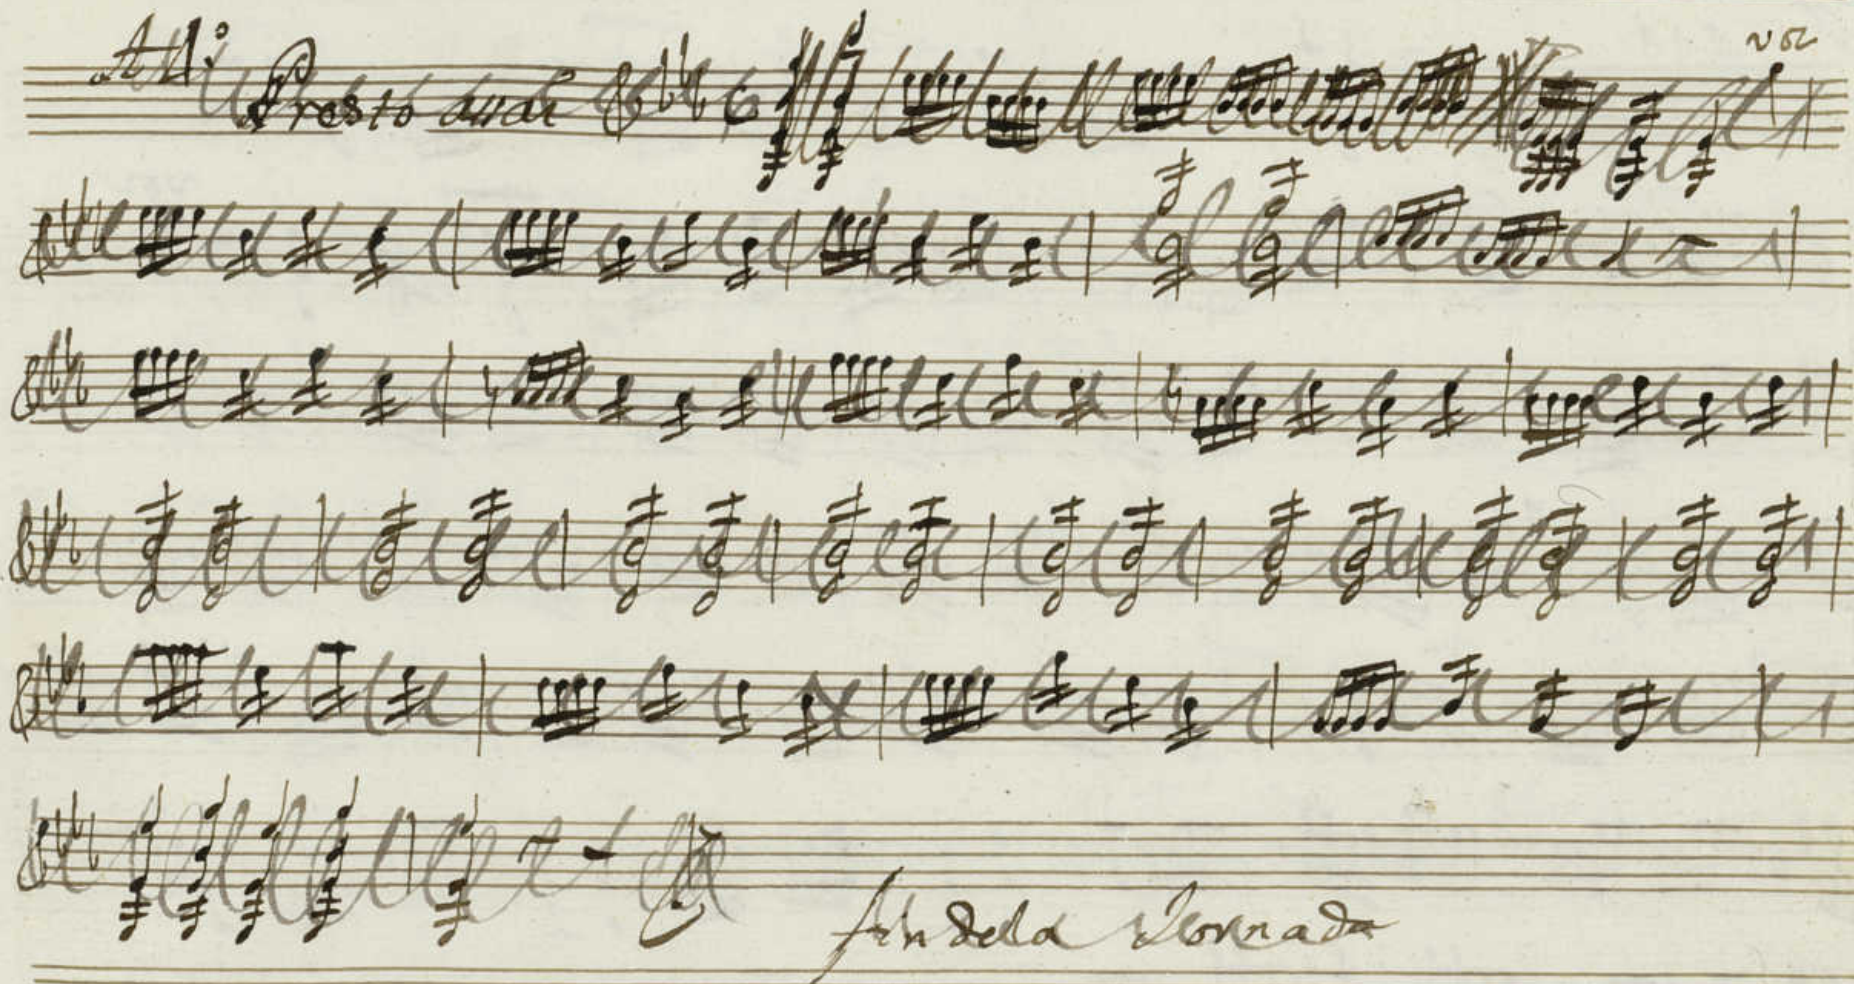 All:º Presto assai
voz
fin dela Jornada